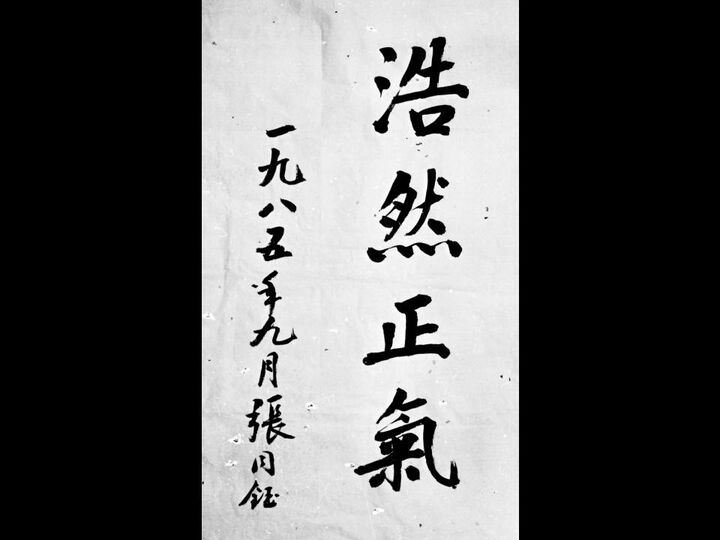 浩然正氣
一九八五年九月張同鈺